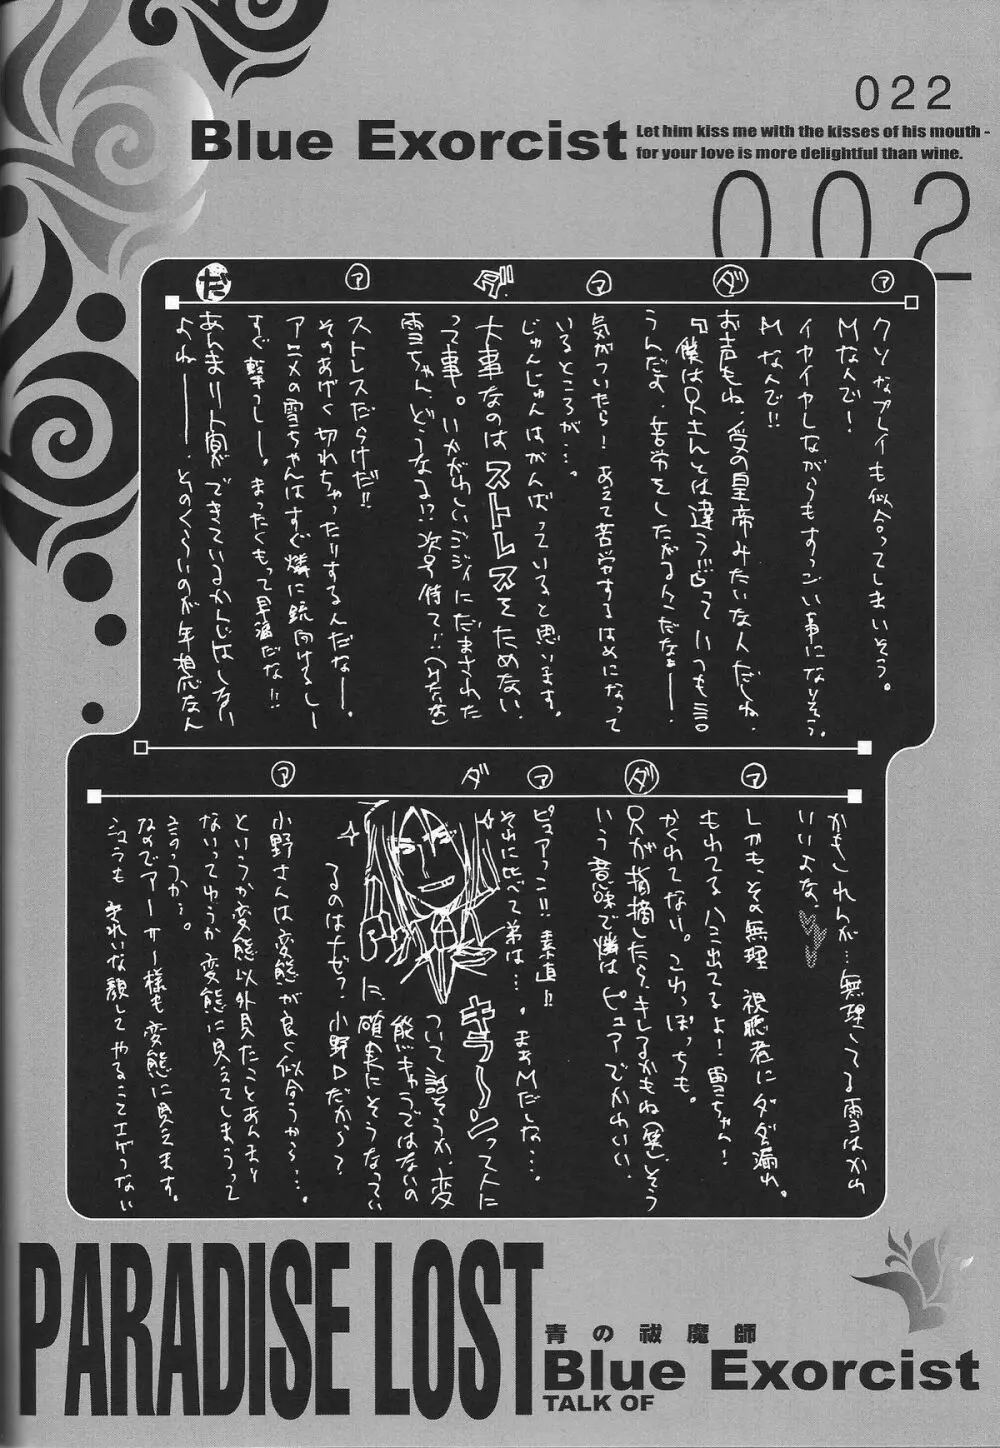 022
Blue Exorcist
Let him kiss me with the kisses of his mouth -
for your love is more delightful than wine.
002
ア
クソなプレイも似合ってしまいそう。
Mなんで!
イヤイヤしながらもすっごい事になりそう。
Mなんで!!
ダ
お声もね、受の皇帝みたいな人だしね、
『僕は兄さんとは違う!!』っていつも言
うんだよ、苦労をしたがる人だなぁー。
マ
気がついたら!あえて苦労するはめになって
いるところが…。
じゅんじゅんはがんばっていると思います。
大事なのはストレスをためない、
って事。いかがわしいジジイにだまされた
雪ちゃん、どうなる!?次号待て!!
ア
ストレスだらけだ!!
そのあげく切れちゃったりするんだなー。
アニメの雪ちゃんはすぐ燐に銃向けるしー
すぐ撃つしー。まったくもって早漏だな!!
だ
あんまりト寛ができているかんじはしない
よねーー、そのくらいのが年相応なん
かもしれんが…無理してる雪はかわ
いいよな、
マ
しかも、その無理 視聴者にダダ漏れ。
もれてるハミ出てるよ!雪ちゃん!
かくれてない。これっぽっちも。
ダ
兄が指摘したら、キレるかもね(笑)そう
いう意味で燐はピュアでかわいい
ア
ピュアっ!!素直!!
それに比べて弟は…。まぁMだしな…。
ダ
キラーンって人に
ついて話そうか、変
態キャラではないの
に、確実にそうなってい
るのはナゼ?小野Dだから〜?
ア
小野さんは変態が良く似合うから…。
というか変態以外見たことあんまり
ないってゆうか変態に見えてしまうって
ゆうか…。
なのでアーサー様も変態に見えます。
きれいな顔してやることエゲつない
PARADISE LOST
青の祓魔師
Blue Exorcist
TALK OF